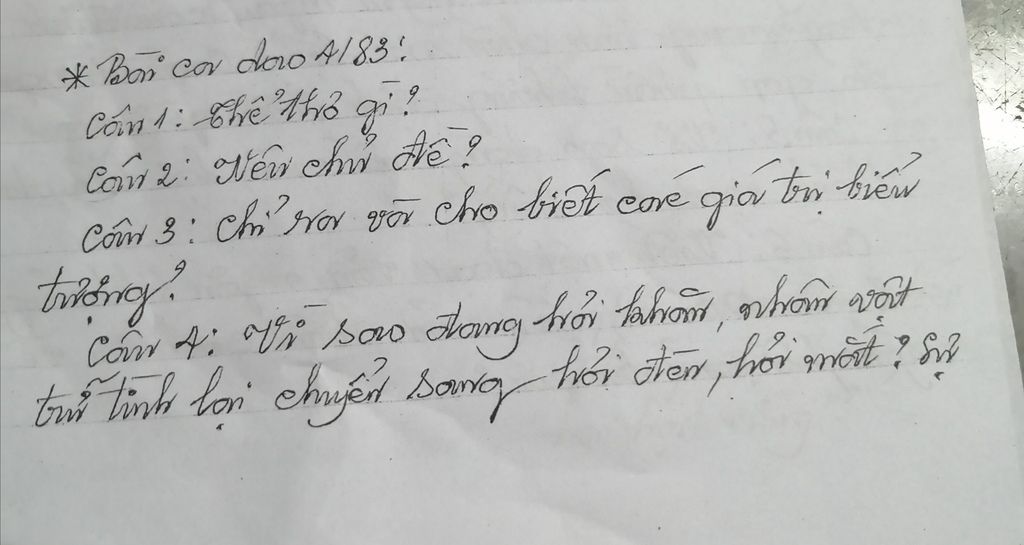 * Bài ca dao 4/83:
Câu 1: Thể thơ gì?
Câu 2: Nêu chủ đề?
Câu 3: Chỉ ra và cho biết các giá trị biểu
tượng?
Câu 4: Vì sao đang hỏi khăn, nhân vật
trữ tình lại chuyển sang hỏi đèn, hỏi mắt? Sự